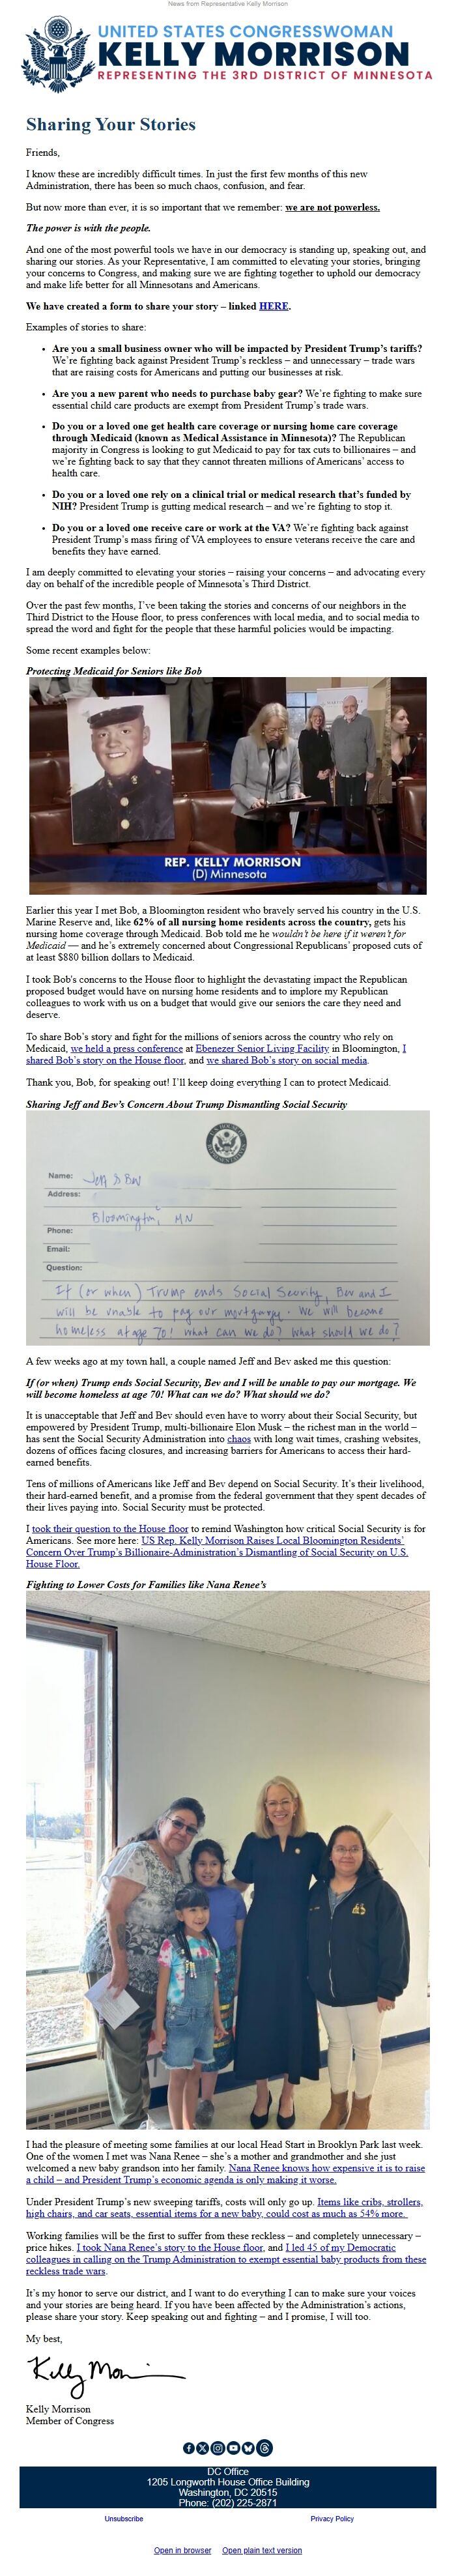 News from Representative Kelly Morrison
UNITED STATES CONGRESSWOMAN
KELLY MORRISON
REPRESENTING THE 3RD DISTRICT OF MINNESOTA
Sharing Your Stories
Friends,
I know these are incredibly difficult times. In just the first few months of this new
Administration, there has been so much chaos, confusion, and fear.
But now more than ever, it is so important that we remember: we are not powerless.
The power is with the people.
And one of the most powerful tools we have in our democracy is standing up, speaking out, and
sharing our stories. As your Representative, I am committed to elevating your stories, bringing
your concerns to Congress, and making sure we are fighting together to uphold our democracy
and make life better for all Minnesotans and Americans.
We have created a form to share your story – linked HERE.
Examples of stories to share:
• Are you a small business owner who will be impacted by President Trump's tariffs?
We're fighting back against President Trump's reckless – and unnecessary – trade wars
that are raising costs for Americans and putting our businesses at risk.
• Are you a new parent who needs to purchase baby gear? We're fighting to make sure
essential child care products are exempt from President Trump's trade wars.
• Do you or a loved one get health care coverage or nursing home care coverage
through Medicaid (known as Medical Assistance in Minnesota)? The Republican
majority in Congress is looking to gut Medicaid to pay for tax cuts to billionaires – and
we're fighting back to say that they cannot threaten millions of Americans' access to
health care.
• Do you or a loved one rely on a clinical trial or medical research that's funded by
NIH? President Trump is gutting medical research – and we're fighting to stop it.
• Do you or a loved one receive care or work at the VA? We're fighting back against
President Trump's mass firing of VA employees to ensure veterans receive the care and
benefits they have earned.
I am deeply committed to elevating your stories – raising your concerns – and advocating every
day on behalf of the incredible people of Minnesota's Third District.
Over the past few months, I've been taking the stories and concerns of our neighbors in the
Third District to the House floor, to press conferences with local media, and to social media to
spread the word and fight for the people that these harmful policies would be impacting.
Some recent examples below:
Protecting Medicaid for Seniors like Bob
REP. KELLY MORRISON
(D) Minnesota
Earlier this year I met Bob, a Bloomington resident who bravely served his country in the U.S.
Marine Reserve and, like 62% of all nursing home residents across the country, gets his
nursing home coverage through Medicaid. Bob told me he wouldn't be here if it weren't for
Medicaid — and he's extremely concerned about Congressional Republicans' proposed cuts of
at least $880 billion dollars to Medicaid.
I took Bob's concerns to the House floor to highlight the devastating impact the Republican
proposed budget would have on nursing home residents and to implore my Republican
colleagues to work with us on a budget that would give our seniors the care they need and
deserve.
To share Bob's story and fight for the millions of seniors across the country who rely on
Medicaid, we held a press conference at Ebenezer Senior Living Facility in Bloomington, I
shared Bob's story on the House floor, and we shared Bob's story on social media.
Thank you, Bob, for speaking out! I'll keep doing everything I can to protect Medicaid.
Sharing Jeff and Bev's Concern About Trump Dismantling Social Security
Name: Jeff & Bev
Address:
Bloomington, MN
Phone:
Email:
Question:
If (or when) Trump ends Social Security, Bev and I
will be unable to pay our mortgage. We will become
homeless at age 70! What can we do? What should we do?
A few weeks ago at my town hall, a couple named Jeff and Bev asked me this question:
If (or when) Trump ends Social Security, Bev and I will be unable to pay our mortgage. We
will become homeless at age 70! What can we do? What should we do?
It is unacceptable that Jeff and Bev should even have to worry about their Social Security, but
empowered by President Trump, multi-billionaire Elon Musk – the richest man in the world –
has sent the Social Security Administration into chaos with long wait times, crashing websites,
dozens of offices facing closures, and increasing barriers for Americans to access their hard-
earned benefits.
Tens of millions of Americans like Jeff and Bev depend on Social Security. It's their livelihood,
their hard-earned benefit, and a promise from the federal government that they spent decades of
their lives paying into. Social Security must be protected.
I took their question to the House floor to remind Washington how critical Social Security is for
Americans. See more here: US Rep. Kelly Morrison Raises Local Bloomington Residents'
Concern Over Trump's Billionaire-Administration's Dismantling of Social Security on U.S.
House Floor.
Fighting to Lower Costs for Families like Nana Renee's
I had the pleasure of meeting some families at our local Head Start in Brooklyn Park last week.
One of the women I met was Nana Renee – she's a mother and grandmother and she just
welcomed a new baby grandson into her family. Nana Renee knows how expensive it is to raise
a child – and President Trump's economic agenda is only making it worse.
Under President Trump's new sweeping tariffs, costs will only go up. Items like cribs, strollers,
high chairs, and car seats, essential items for a new baby, could cost as much as 54% more.
Working families will be the first to suffer from these reckless – and completely unnecessary –
price hikes. I took Nana Renee's story to the House floor, and I led 45 of my Democratic
colleagues in calling on the Trump Administration to exempt essential baby products from these
reckless trade wars.
It's my honor to serve our district, and I want to do everything I can to make sure your voices
and your stories are being heard. If you have been affected by the Administration's actions,
please share your story. Keep speaking out and fighting – and I promise, I will too.
My best,
Kelly Morrison
Member of Congress
DC Office
1205 Longworth House Office Building
Washington, DC 20515
Phone: (202) 225-2871
Unsubscribe
Privacy Policy
Open in browser
Open plain text version